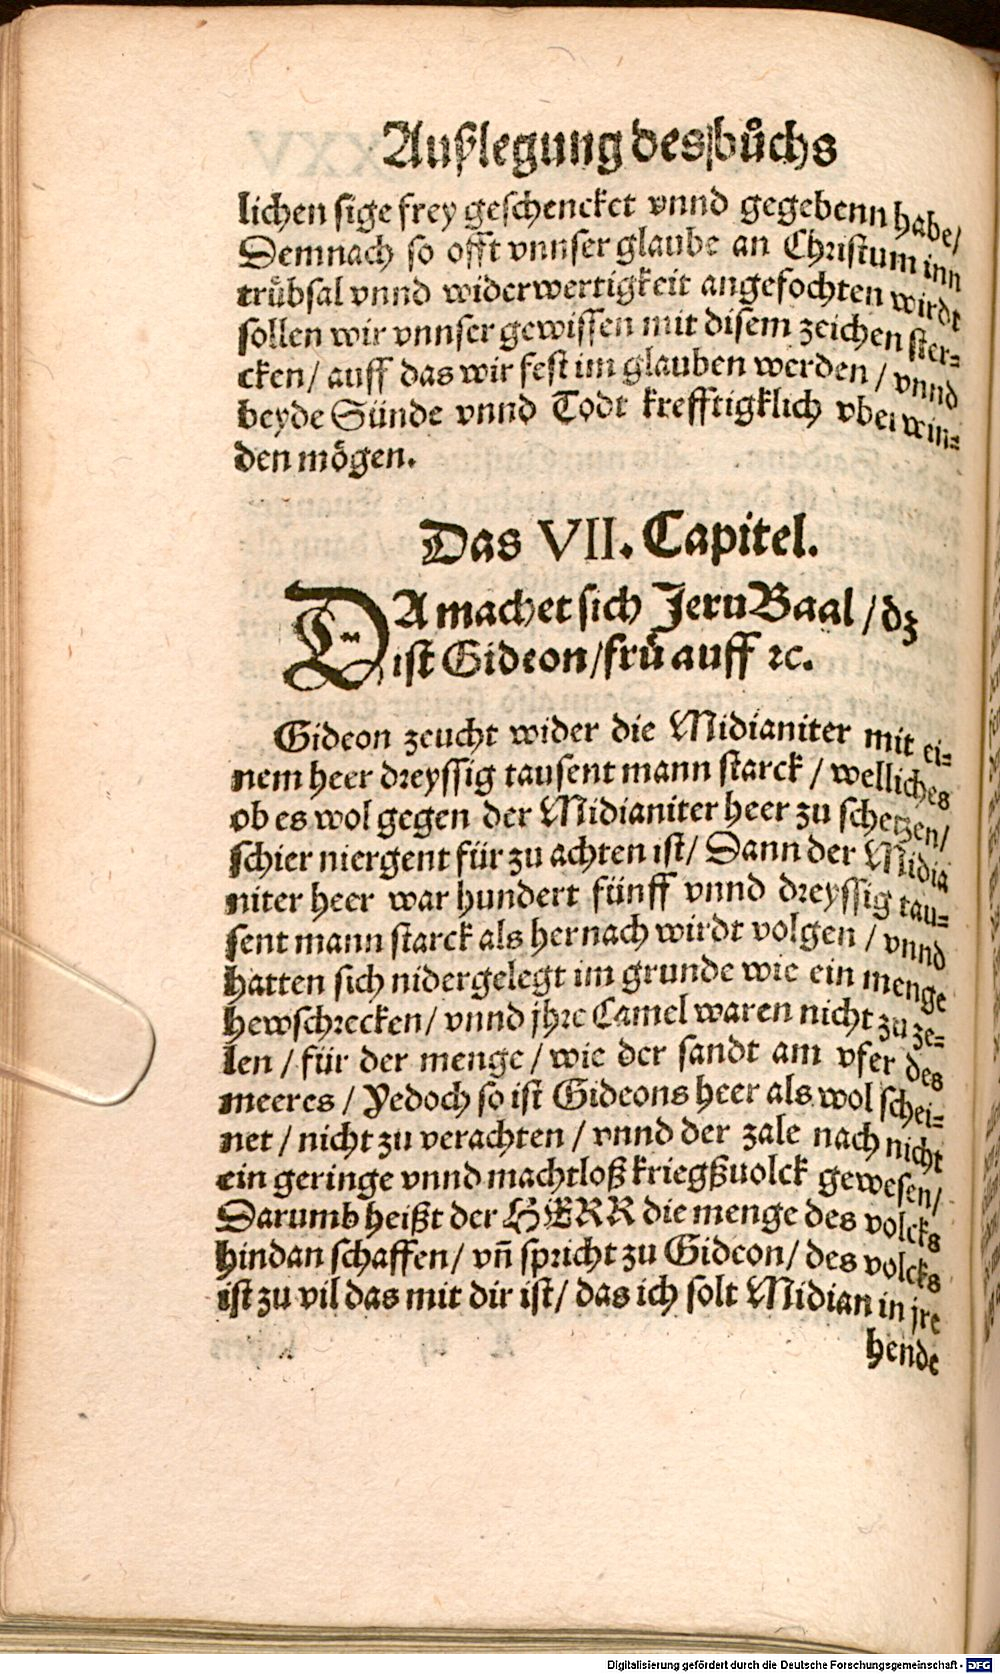 Außlegung des bůchs
lichen sige frey geschencket vnnd gegebenn habe/
Demnach so offt vnnser glaube an Christum inn
trůbsal vnnd widerwertigkeit angefochten wirdt
sollen wir vnnser gewissen mit disem zeichen ster⸗
cken/ auff das wir fest im glauben werden/ vnnd
beyde Sünde vnnd Todt krefftigklich vberwin⸗
den mögen.
Das VII. Capitel.
DA machet sich JeruBaal/ dz
ist Gideon/ frů auff ꝛc.
Gideon zeucht wider die Midianiter mit ei⸗
nem heer dreyssig tausent mann starck/ welliches
ob es wol gegen der Midianiter heer zu schetzen/
schier niergent für zu achten ist/ Dann der Midia
niter heer war hundert fünff vnnd dreyssig tau⸗
sent mann starck als hernach wirdt volgen/ vnnd
hatten sich nidergelegt im grunde wie ein menge
hewschrecken/ vnnd jhre Camel waren nicht zu ze⸗
len/ für der menge/ wie der sandt am vfer des
meeres/ Yedoch so ist Gideons heer als wol schei⸗
net/ nicht zu verachten/ vnnd der zale nach nicht
ein geringe vnnd machtloß kriegßuolck gewesen/
Darumb heißt der HERR die menge des volcks
hindan schaffen/ vñ spricht zu Gideon/ des volcks
ist zu vil das mit dir ist/ das ich solt Midian in jre
hende
Digitalisierung gefördert durch die Deutsche Forschungsgemeinschaft - DFG